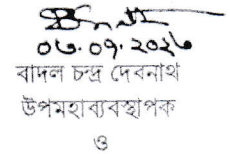 ০৭.০৭.২০২৬
বাদল চন্দ্র দেবনাথ
উপমহাব্যবস্থাপক
ও